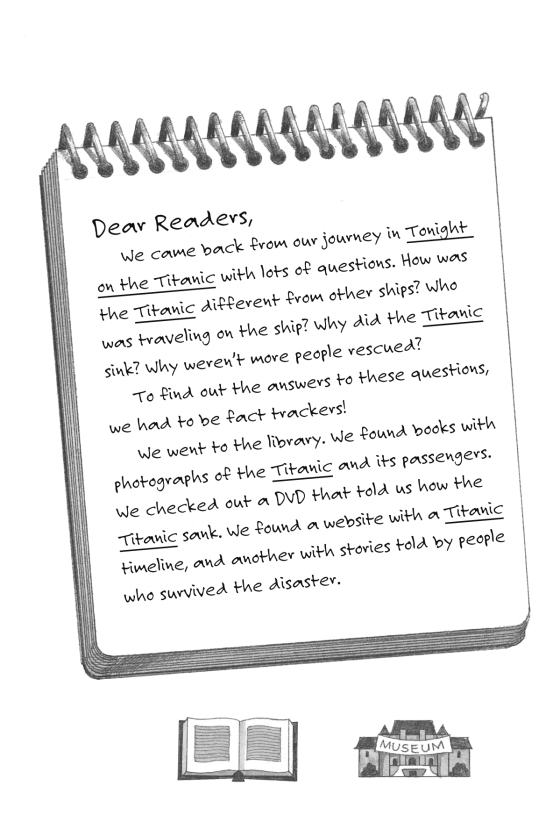 Dear Readers,
We came back from our journey in Tonight
on the Titanic with lots of questions. How was
the Titanic different from other ships? Who
was traveling on the ship? Why did the Titanic
sink? Why weren't more people rescued?
To find out the answers to these questions,
we had to be fact trackers!
We went to the library. We found books with
photographs of the Titanic and its passengers.
We checked out a DVD that told us how the
Titanic sank. We found a website with a Titanic
timeline, and another with stories told by people
who survived the disaster.
MUSEUM